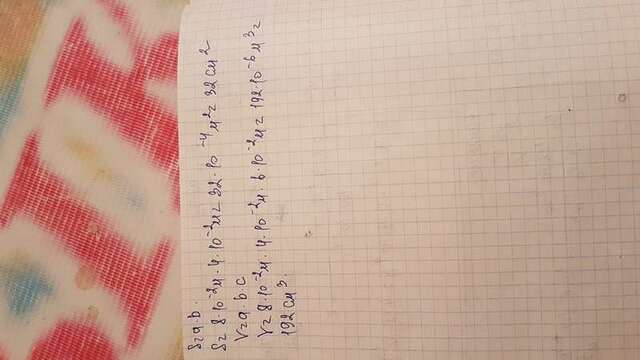 S=a·b.
S=8·10⁻²м·4·10⁻²м=32·10⁻⁴м²=32см²
V=a·b·c
V=8·10⁻²м·4·10⁻²м·6·10⁻²м=192·10⁻⁶м³=
192см³.